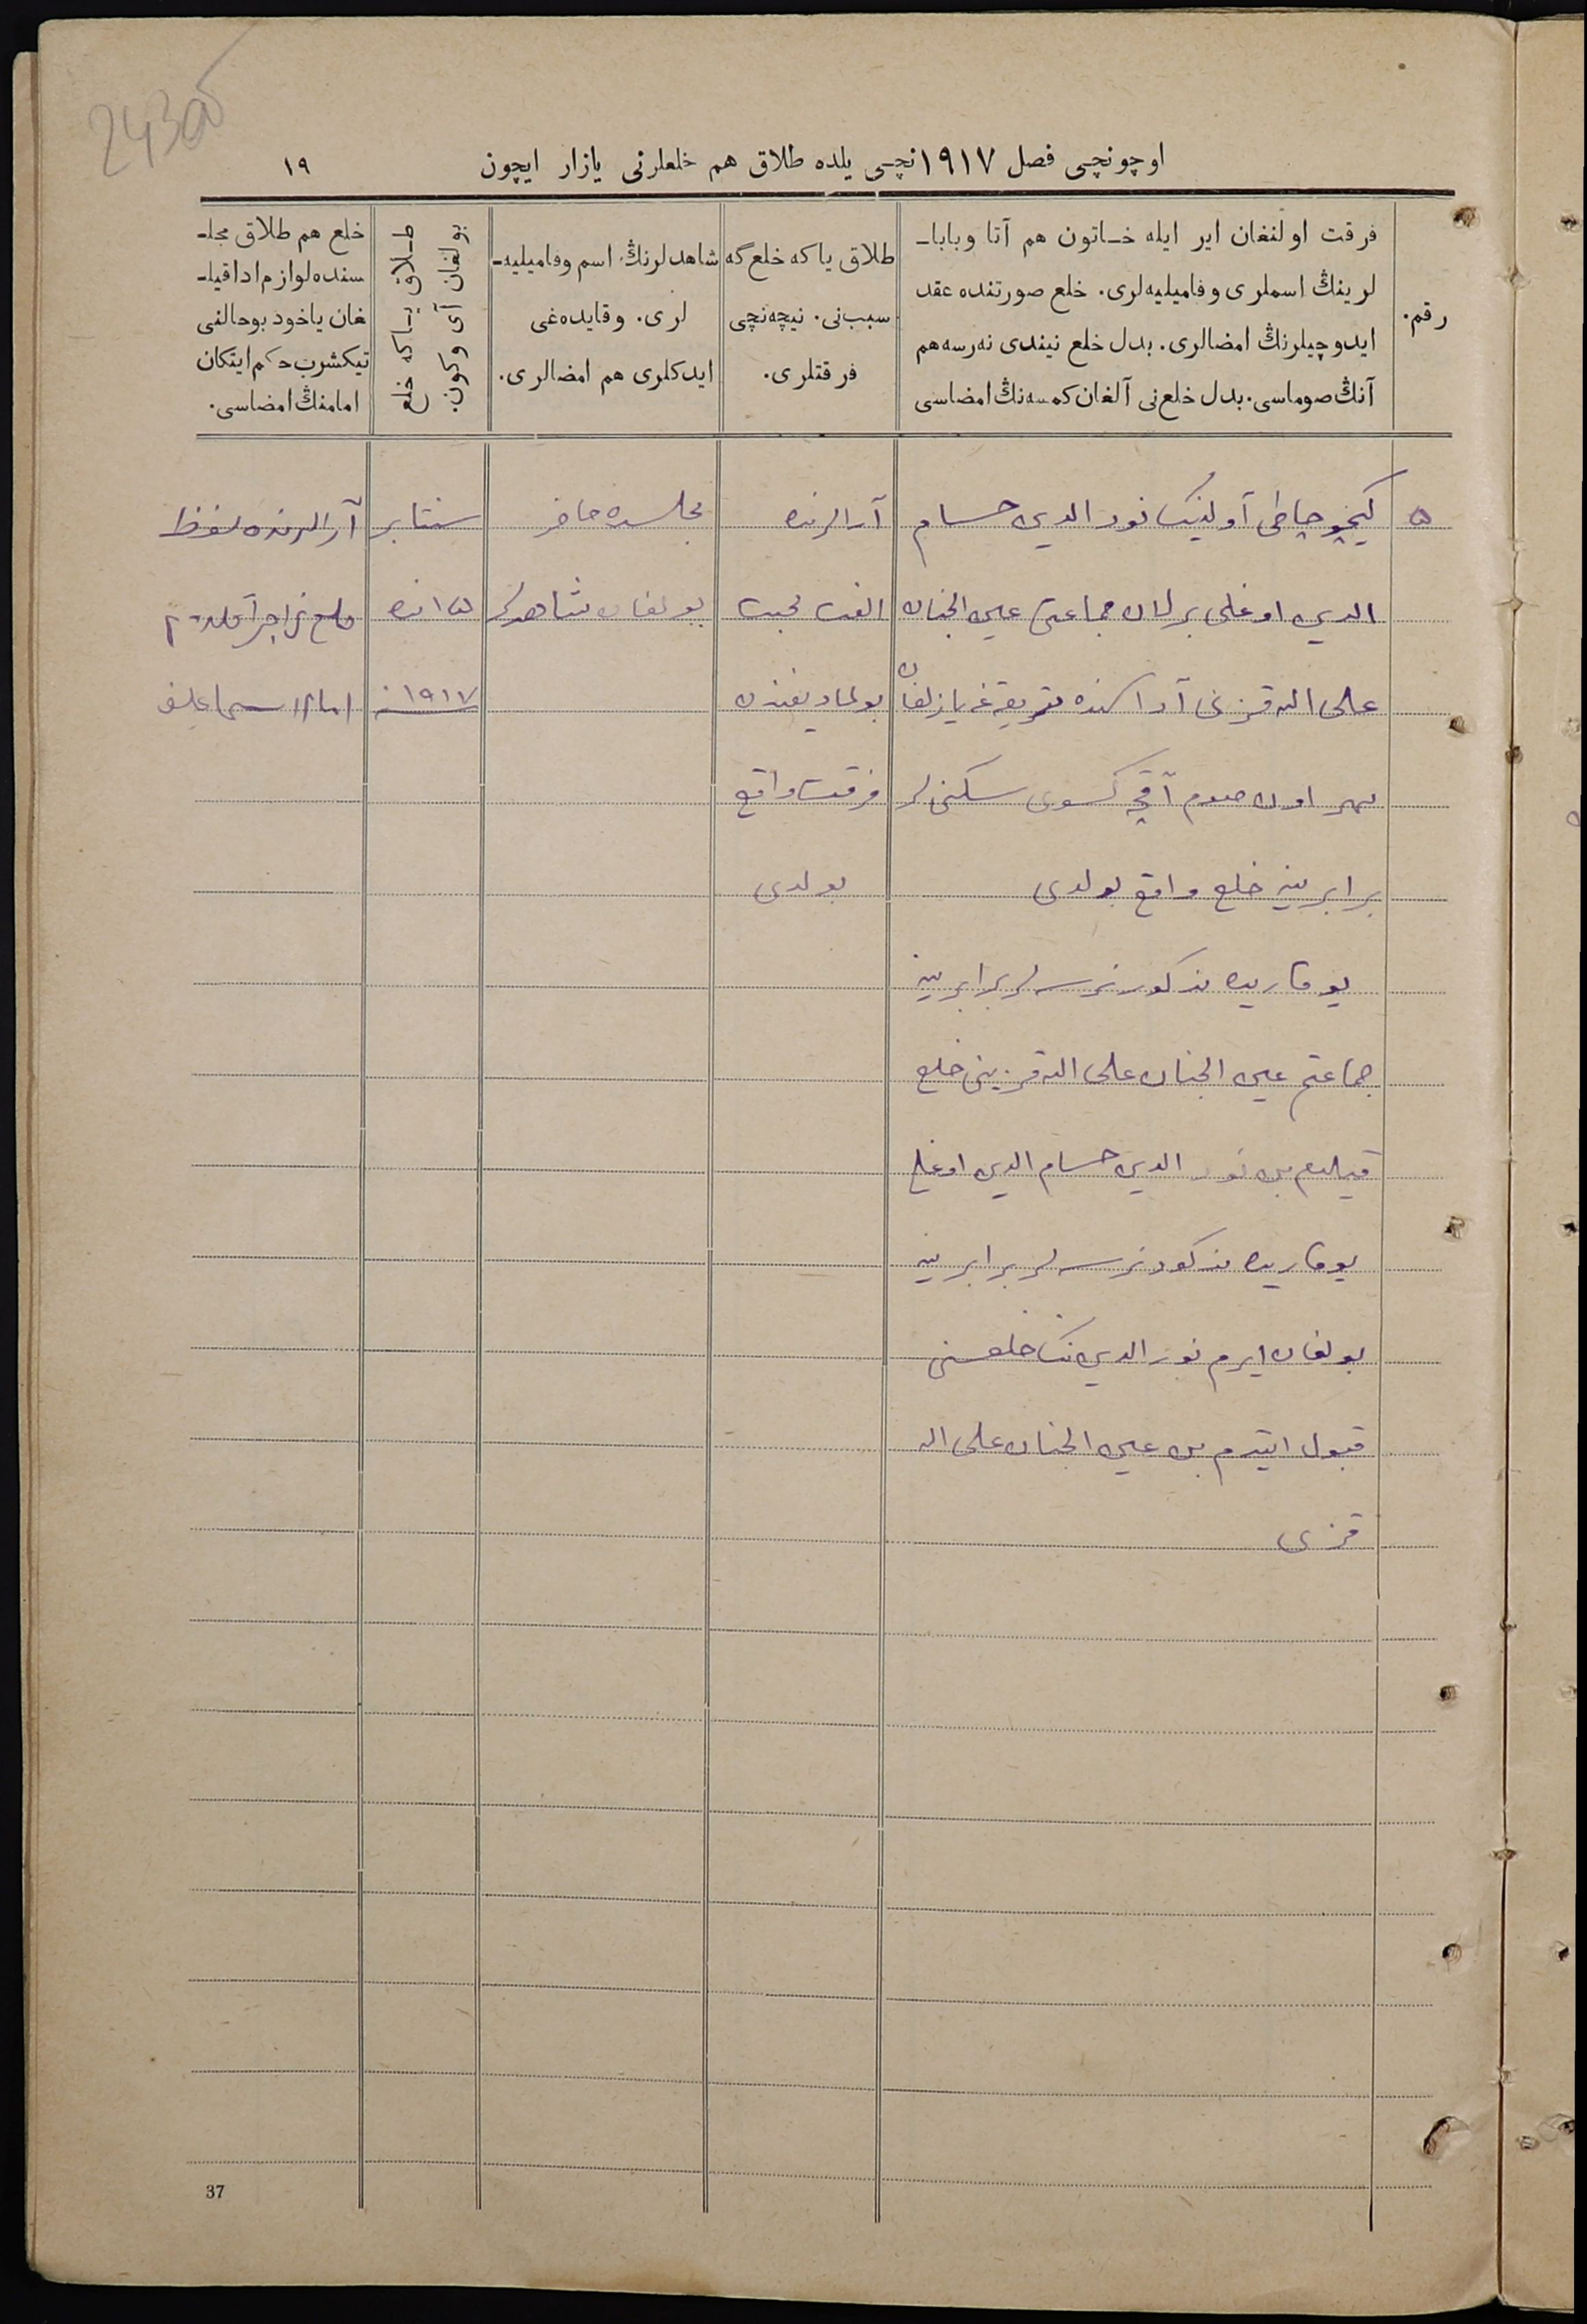 243об
اوچونچی فصل ١٩١٧نچی یلده طلاق هم خلعلرنی یازار ایچون
١٩
رقم.
فرقت اولنغان ایر ایله خـاتون هم آتا وبابا۔
لرینڭ اسملری وفامیلیه‌لری. خلع صورتنده عقد
ایدوچیلرنڭ امضالری. بدل خلع نیندی نه‌رسه هم
آنڭ صوماسی. بدل خلع‌نی آلغان کمسه‌نڭ امضاسی
طلاق یاکه خلع‌گه
سبب‌نی. نیچه‌نچی
فرقتلری.
شاهدلرنڭ اسم وفامیلیه۔
لری. وقایده‌غی
ایدکلری هم امضالری.
طـلاق یـاکه خلع
بولغان آی وکون.
خلع هم طلاق مجلـ
سنده لوازم ادا قیلـ
غان یاخود بوحالنی
تیکشرب حکم ایتکان
امامنڭ امضاسی.
٥
کیچو چاطی آولینک نورالدین حسام
الدین اوغلی برلان جماعتی عین الجنان
علی الله قزی آراسنده یازلغان
مهر اون صوم آقچه سکنی لر
برابرینه خلع واقع بولدی
یوقاریده مذکور نرسه لر برابرینه
جماعتم عین الجنان علی الله قزینی خلع
قیلدم من نورالدین حسام الدین اوغلی
یوقاریده مذکور نرسه لر برابرینه
بولغان ایرم نورالدین نک خلعسنی
قبول ایتدم من عین الجنان علی الله
قزی
آرالرنده
الفت محبت
بولماویغندن
فرقت واقع
بولدی
مجلسده حاضر
بولغان شاهدلر
سنتابر
١٥ نده
١٩١٧
آرالرنده لفظ
خلع نی اجرا قلدم
امام اسماعیلف
37